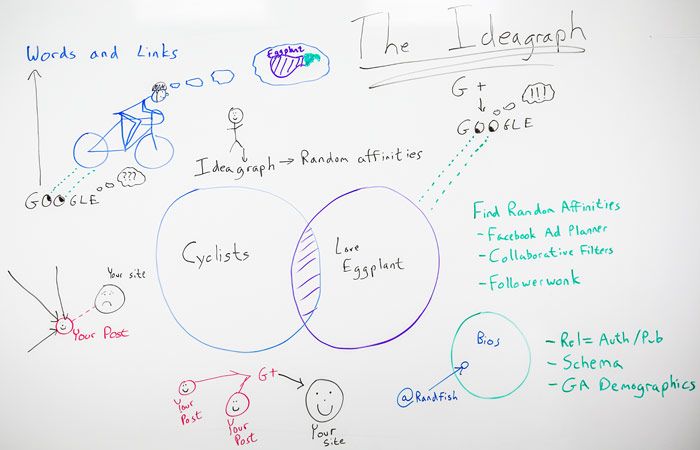 The Ideagraph
Words and Links
Eggplant
G +
!!!
GOOGLE
Ideagraph → Random affinities
???
GOOGLE
Cyclists
Love
Eggplant
Find Random Affinities
- Facebook Ad Planner
- Collaborative Filters
- Followerwonk
Your site
Your Post
Bios
@Randfish
- Rel= Auth/Pub
- Schema
- GA Demographics
G+
Your
Post
Your
Post
Your
site